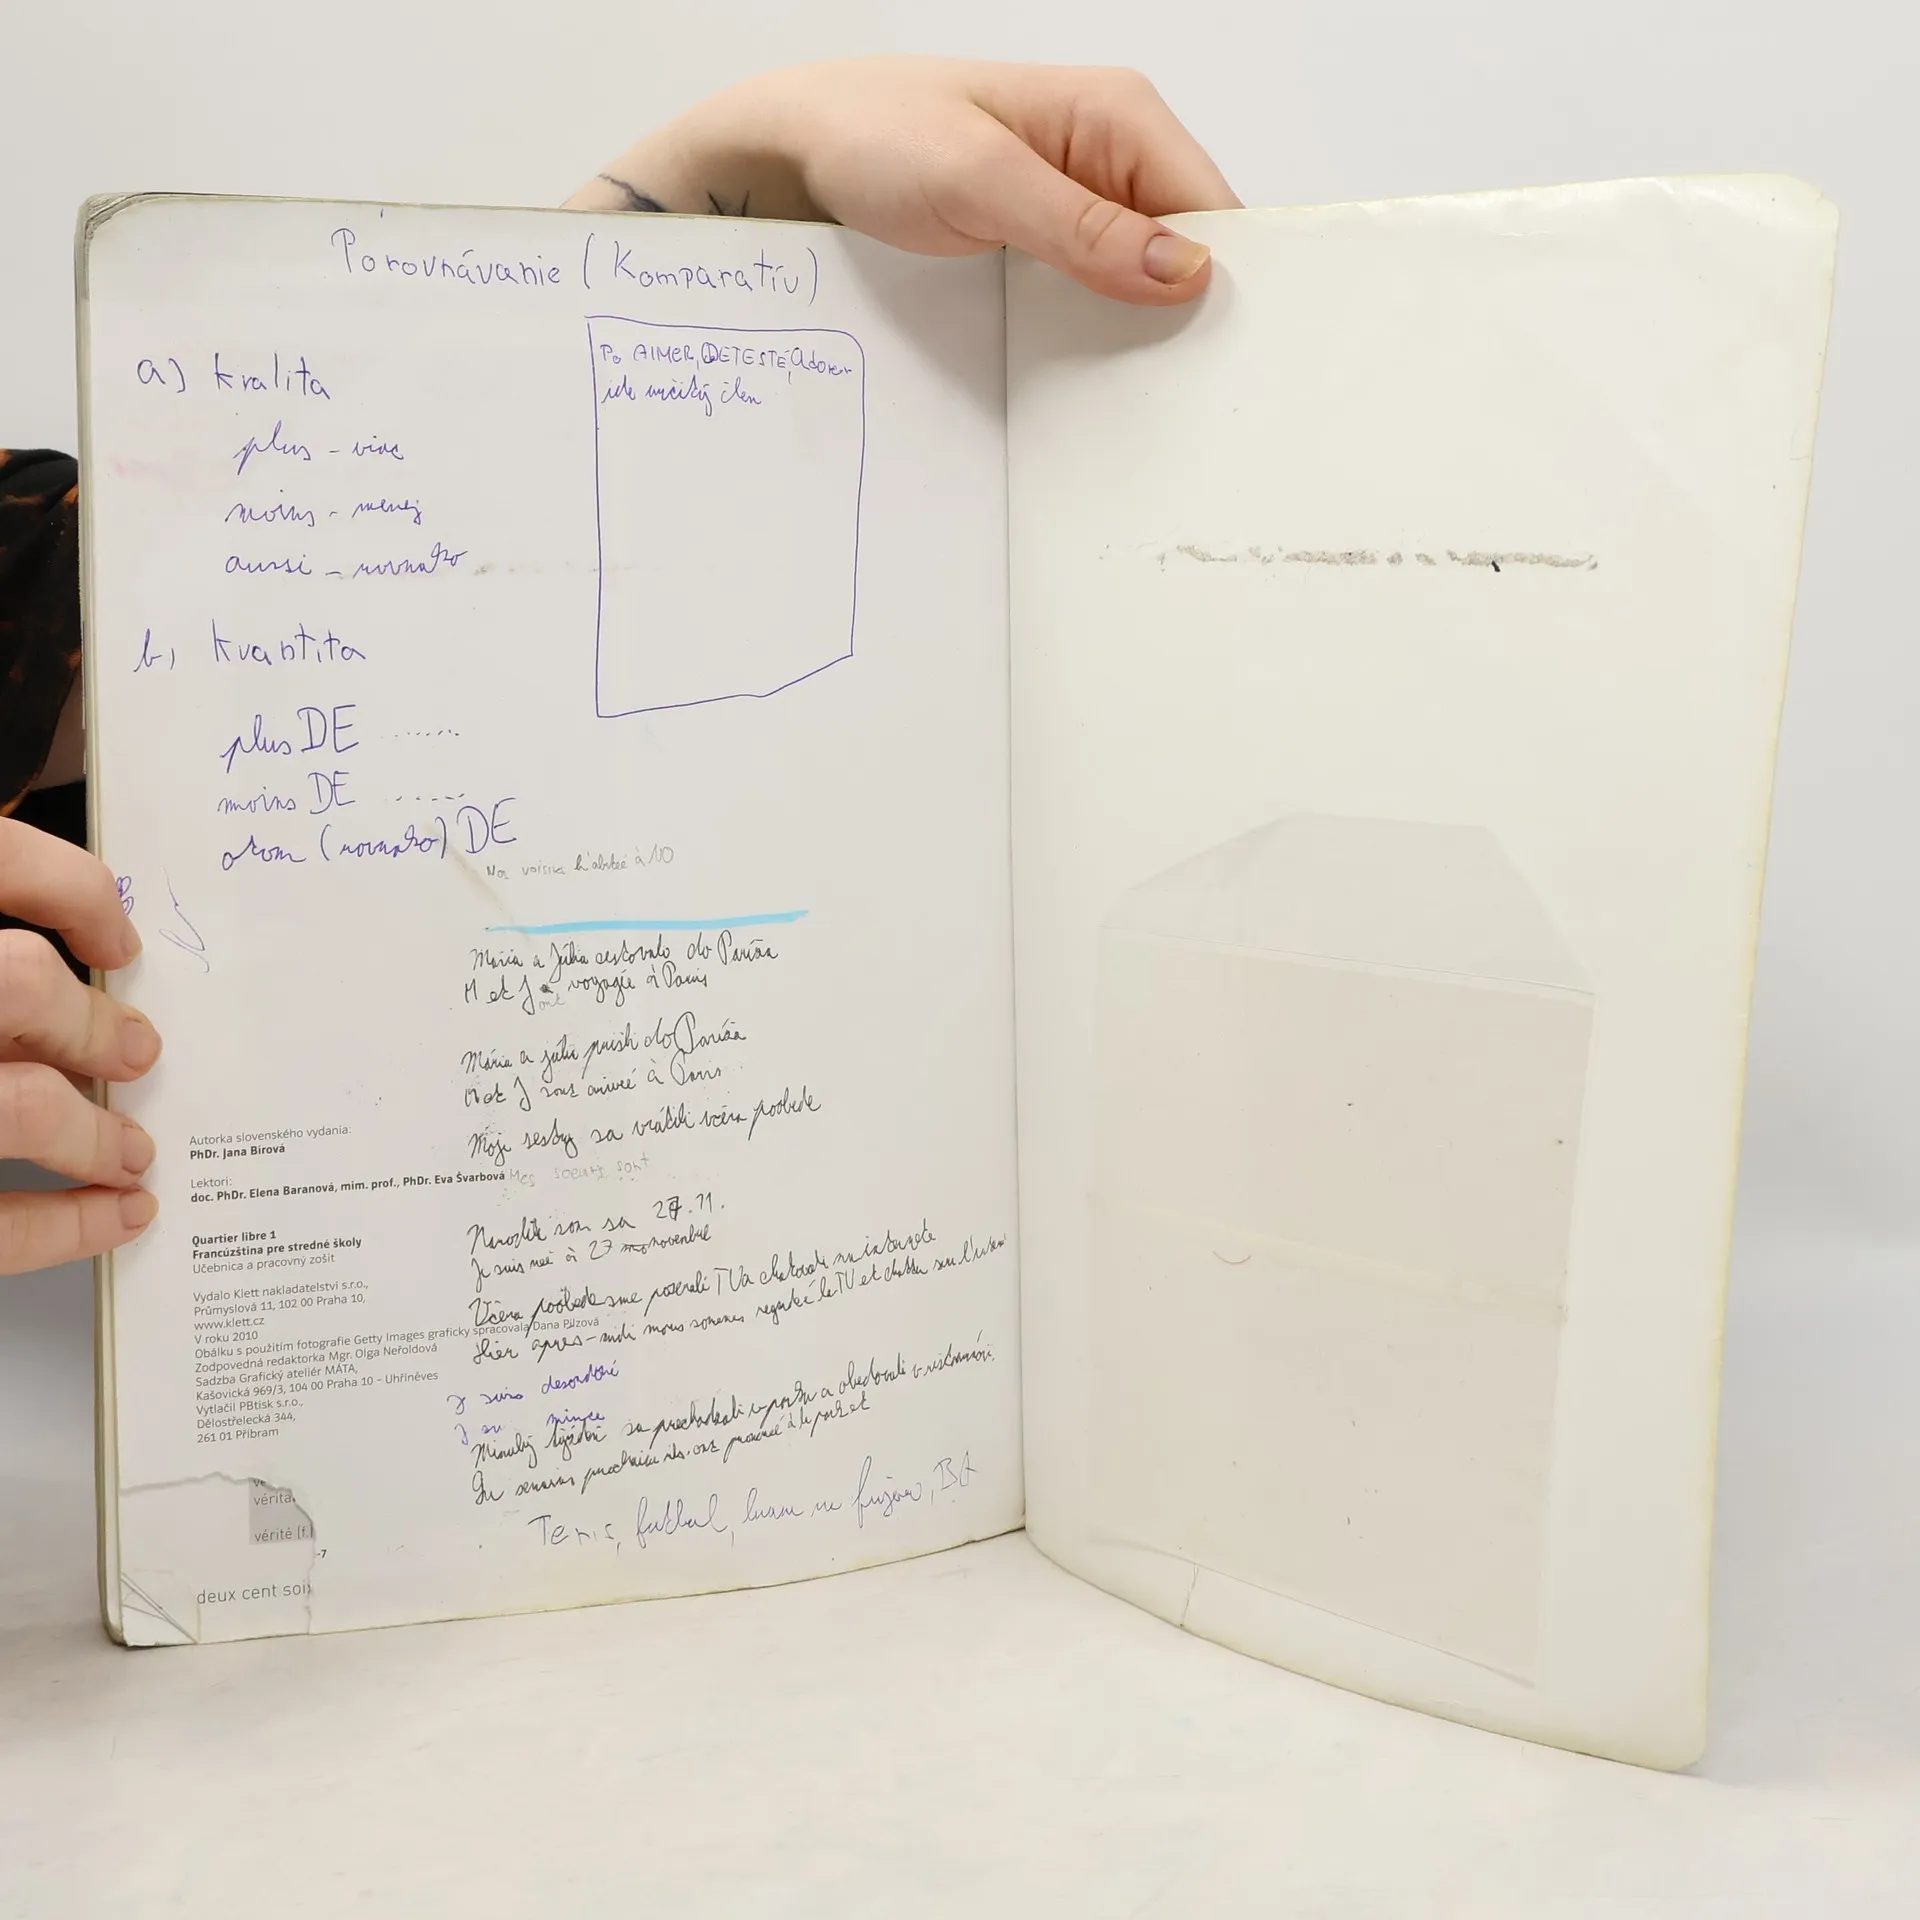 Porovnávanie (Komparatív)
a) kvalita
plus - viac
moins - menej
aussi - rovnako
Po AIMER, DETESTÉ, Adorer
ide určitý člen
b) Kvantita
plus DE .......
moins DE .....
(rovnako) DE
voisins à
Mária a Júlia cestovalo do Paríža
M et J ont voyagié à Paris
Mária a Júlia prišli do Paríža
M et J sont arivée à Paris
Moje sestry sa vrátili včera poobede
Mes soeurs sont
Narodila som sa 27.11.
Je suis neé à 27 novembre
Včera poobede sme pozerali TV a chatovali na internete
Hier apres-midi nous sommes regardé la TV et
J suis desordoné
J su mince
Minulý týždeň sa prechádzali v parku a obedovali v
ont à le park et
Tenis, futbal, hram na, BA
Autorka slovenského vydania:
PhDr. Jana Bírová
Lektori:
doc. PhDr. Elena Baranová, mim. prof., PhDr. Eva Švarbová
Quartier libre 1
Francúzština pre stredné školy
Učebnica a pracovný zošit
Vydalo Klett nakladatelství s.r.o.,
Průmyslová 11, 102 00 Praha 10,
www.klett.cz
V roku 2010
Obálku s použitím fotografie Getty Images graficky spracovala Dana Pilzová
Zodpovedná redaktorka Mgr. Olga Neřoldová
Sadzba Grafický ateliér MÁTA,
Kašovická 969/3, 104 00 Praha 10 – Uhříněves
Vytlačil PBtisk s.r.o.,
Dělostřelecká 344,
261 01 Příbram
vérité (f.)
-7
deux cent soix